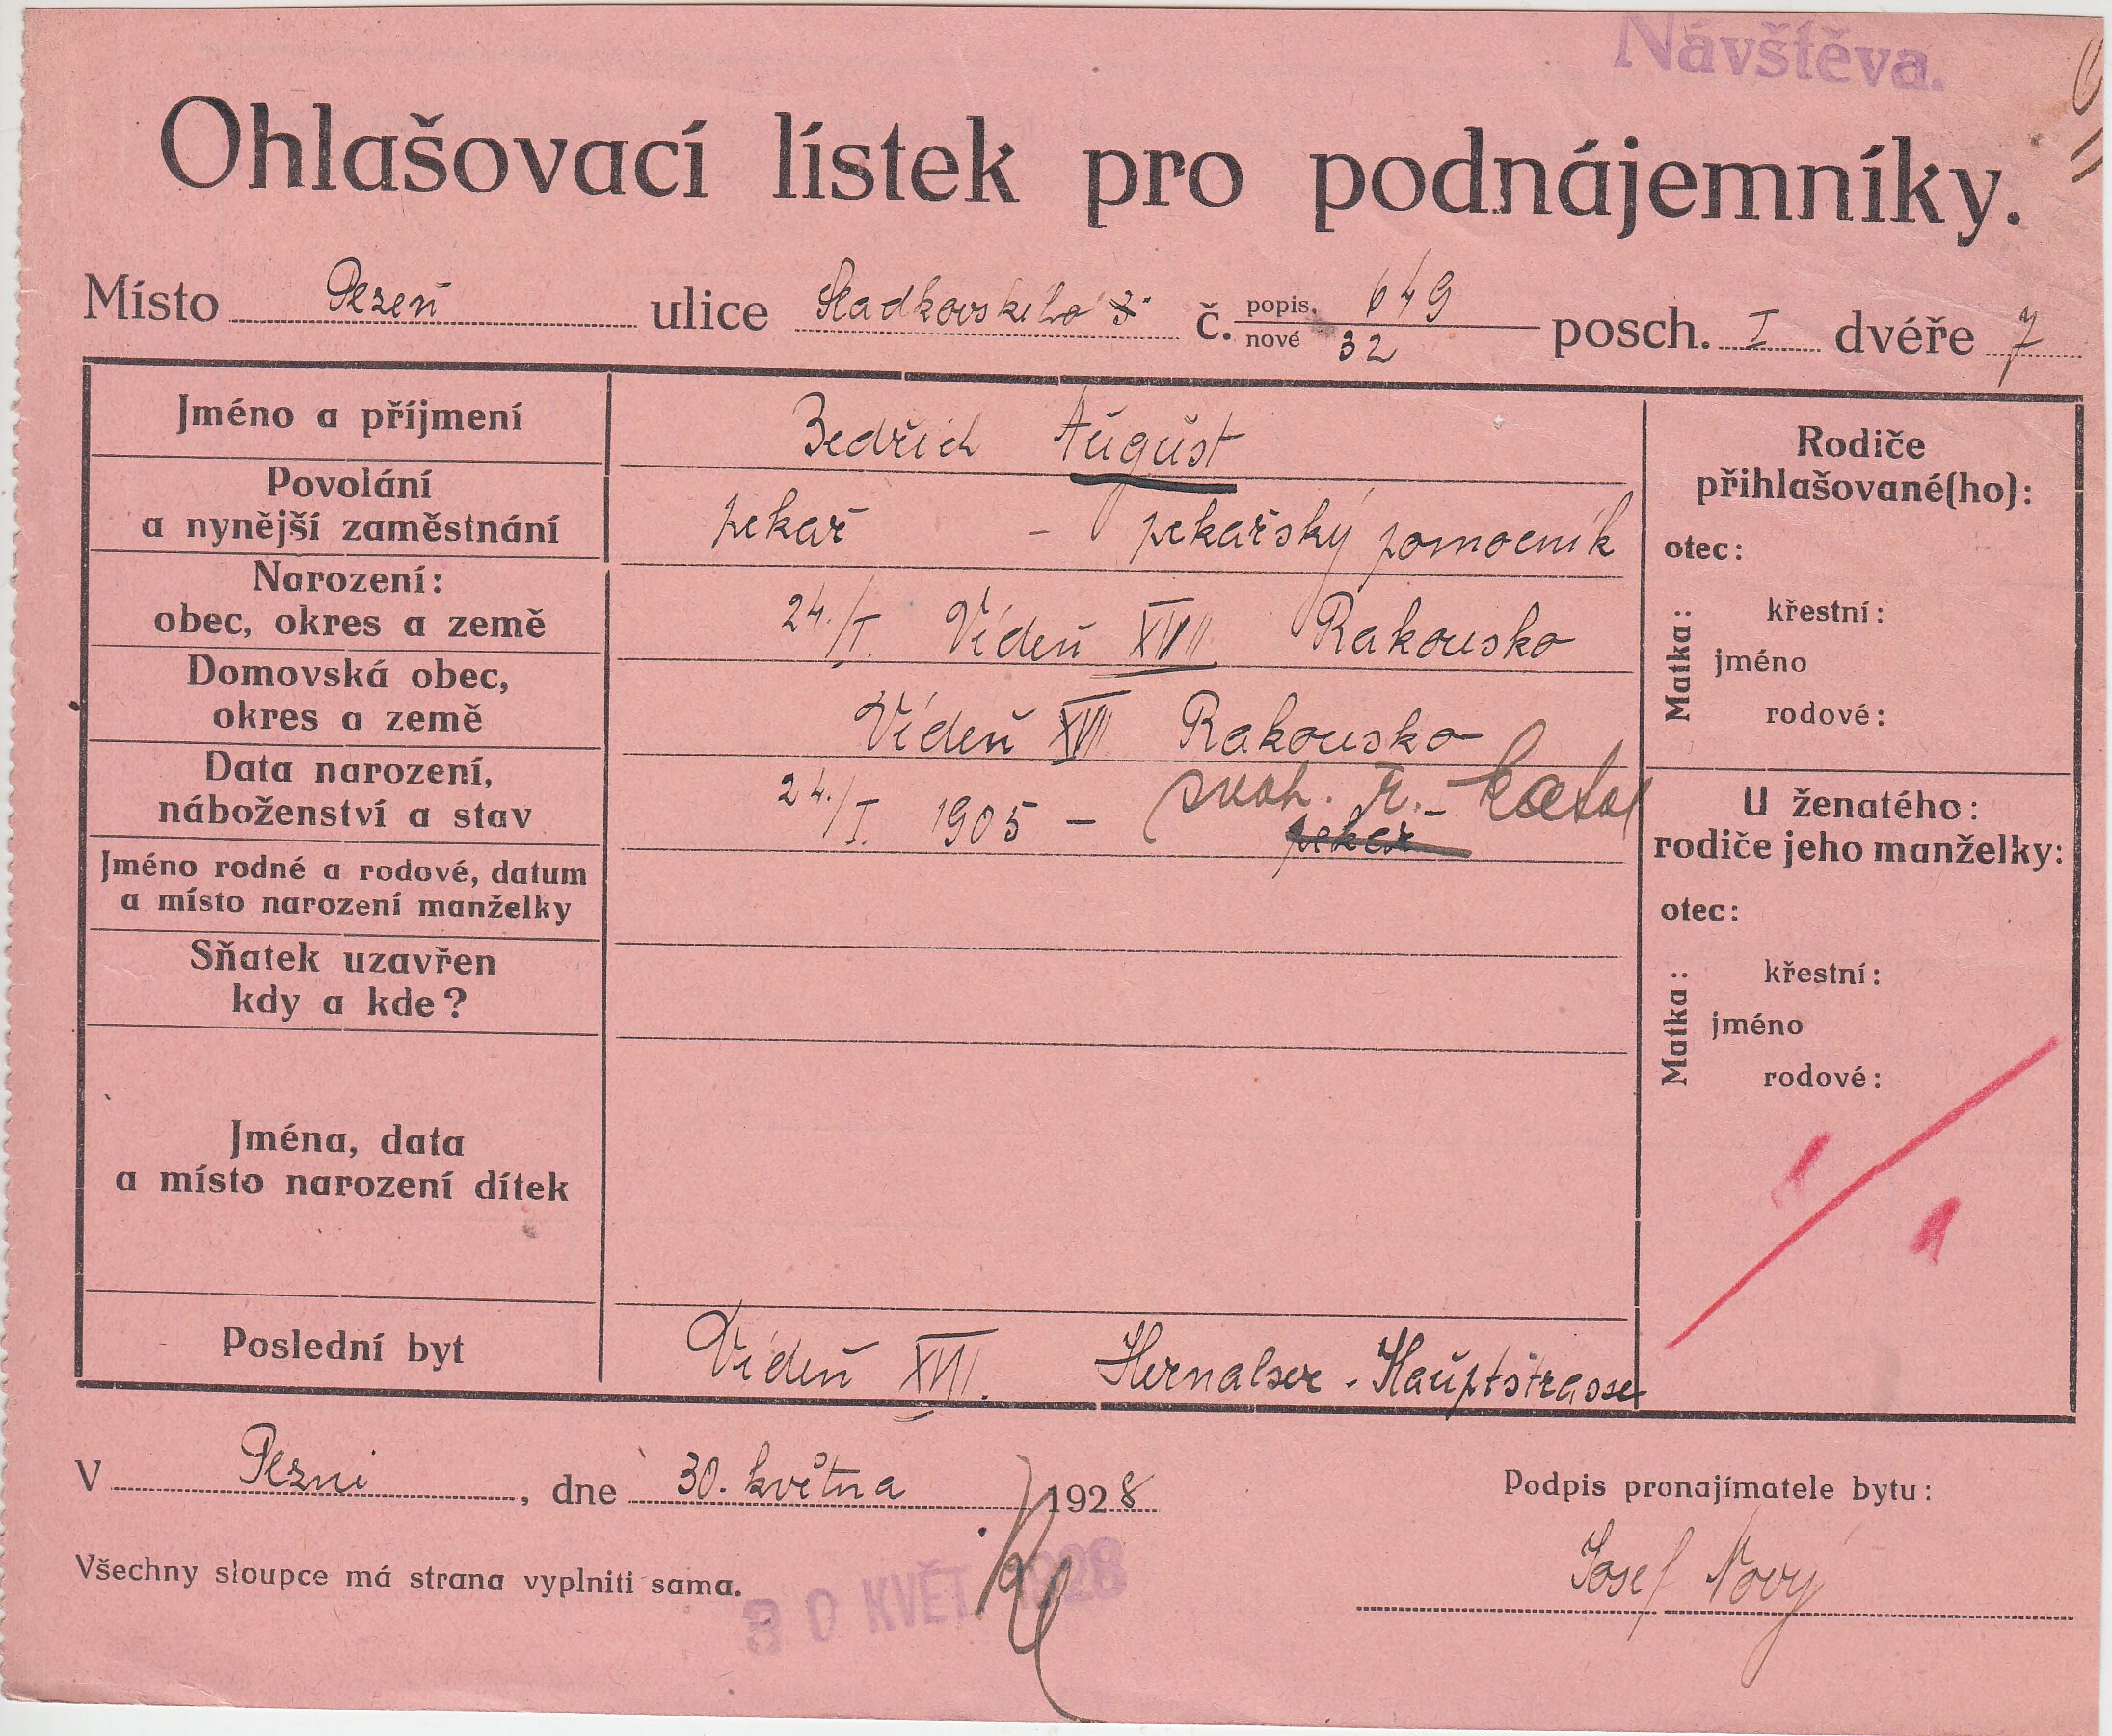 Návštěva.
Ohlašovací lístek pro podnájemníky.
Místo Plzeň ulice Sladkovského č. popis. 649 nové 32 posch. I dvéře 7
Jméno a příjmení
Bedřich August
Povolání
a nynější zaměstnání
pekař - pekařský pomocník
Narození:
obec, okres a země
24./I. Vídeň XVII Rakousko
Domovská obec,
okres a země
Vídeň XVII Rakousko
Data narození,
náboženství a stav
24./I. 1905 - svob. ř.-katol
pekař
Jméno rodné a rodové, datum
a místo narození manželky
Sňatek uzavřen
kdy a kde?
Jména, data
a místo narození dítek
Poslední byt
Vídeň XVII. Hernalser-Hauptstrasse
Rodiče
přihlašované(ho):
otec:
Matka:
křestní:
jméno
rodové:
U ženatého:
rodiče jeho manželky:
otec:
Matka:
křestní:
jméno
rodové:
V Plzni, dne 30. května 1928
Podpis pronajímatele bytu:
Josef Nový
Všechny sloupce má strana vyplniti sama.
30 KVĚT. 1928